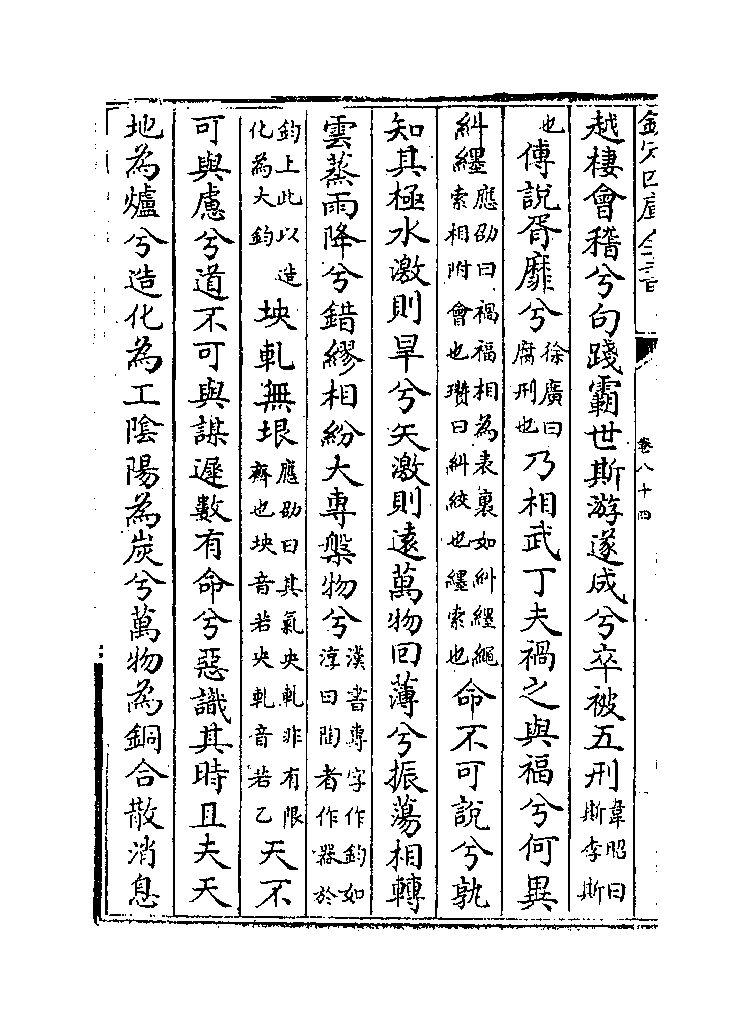 欽定四庫全書
卷八十四
越棲會稽兮句踐霸世斯游遂成兮卒被五刑韋昭曰斯李斯
也傅說胥靡兮徐廣曰腐刑也乃相武丁夫禍之與福兮何異
糾纆應劭曰禍福相為表裏如糾纆繩索相附會也瓚曰糾絞也纆索也命不可說兮孰
知其極水激則旱兮矢激則遠萬物回薄兮振蕩相轉
雲蒸雨降兮錯繆相紛大專槃物兮漢書專字作鈞如淳曰陶者作器於
鈞上此以造化為大鈞坱軋無垠應劭曰其氣央軋非有限齊也坱音若央軋音若乙天不
可與慮兮道不可與謀遲數有命兮惡識其時且夫天
地為爐兮造化為工陰陽為炭兮萬物為銅合散消息